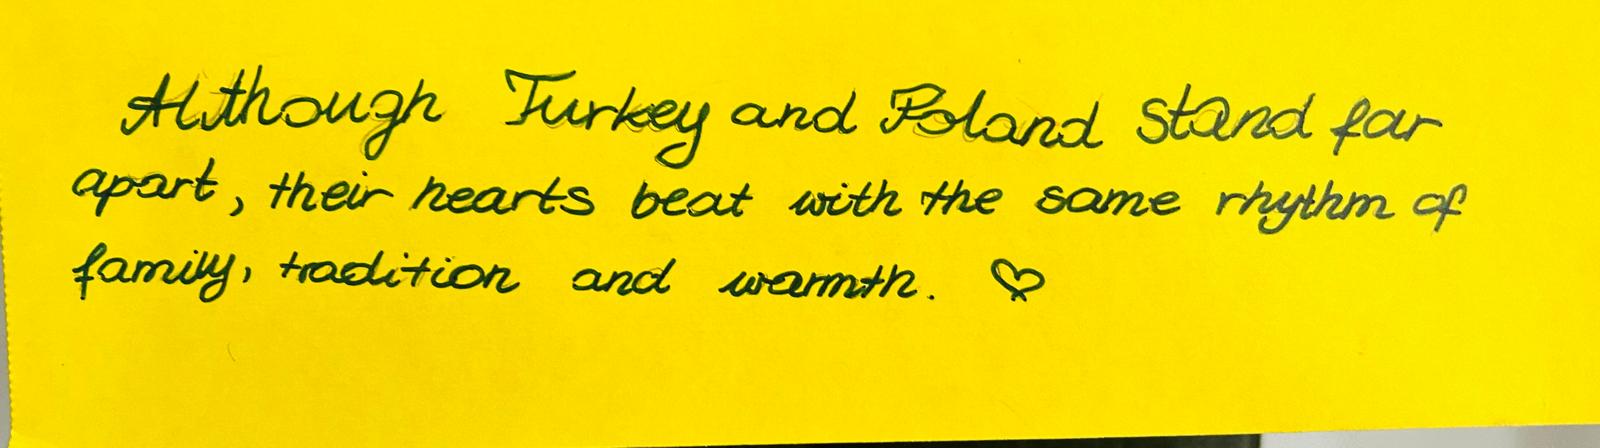 Although Turkey and Poland stand far
apart, their hearts beat with the same rhythm of
family, tradition and warmth. ♡